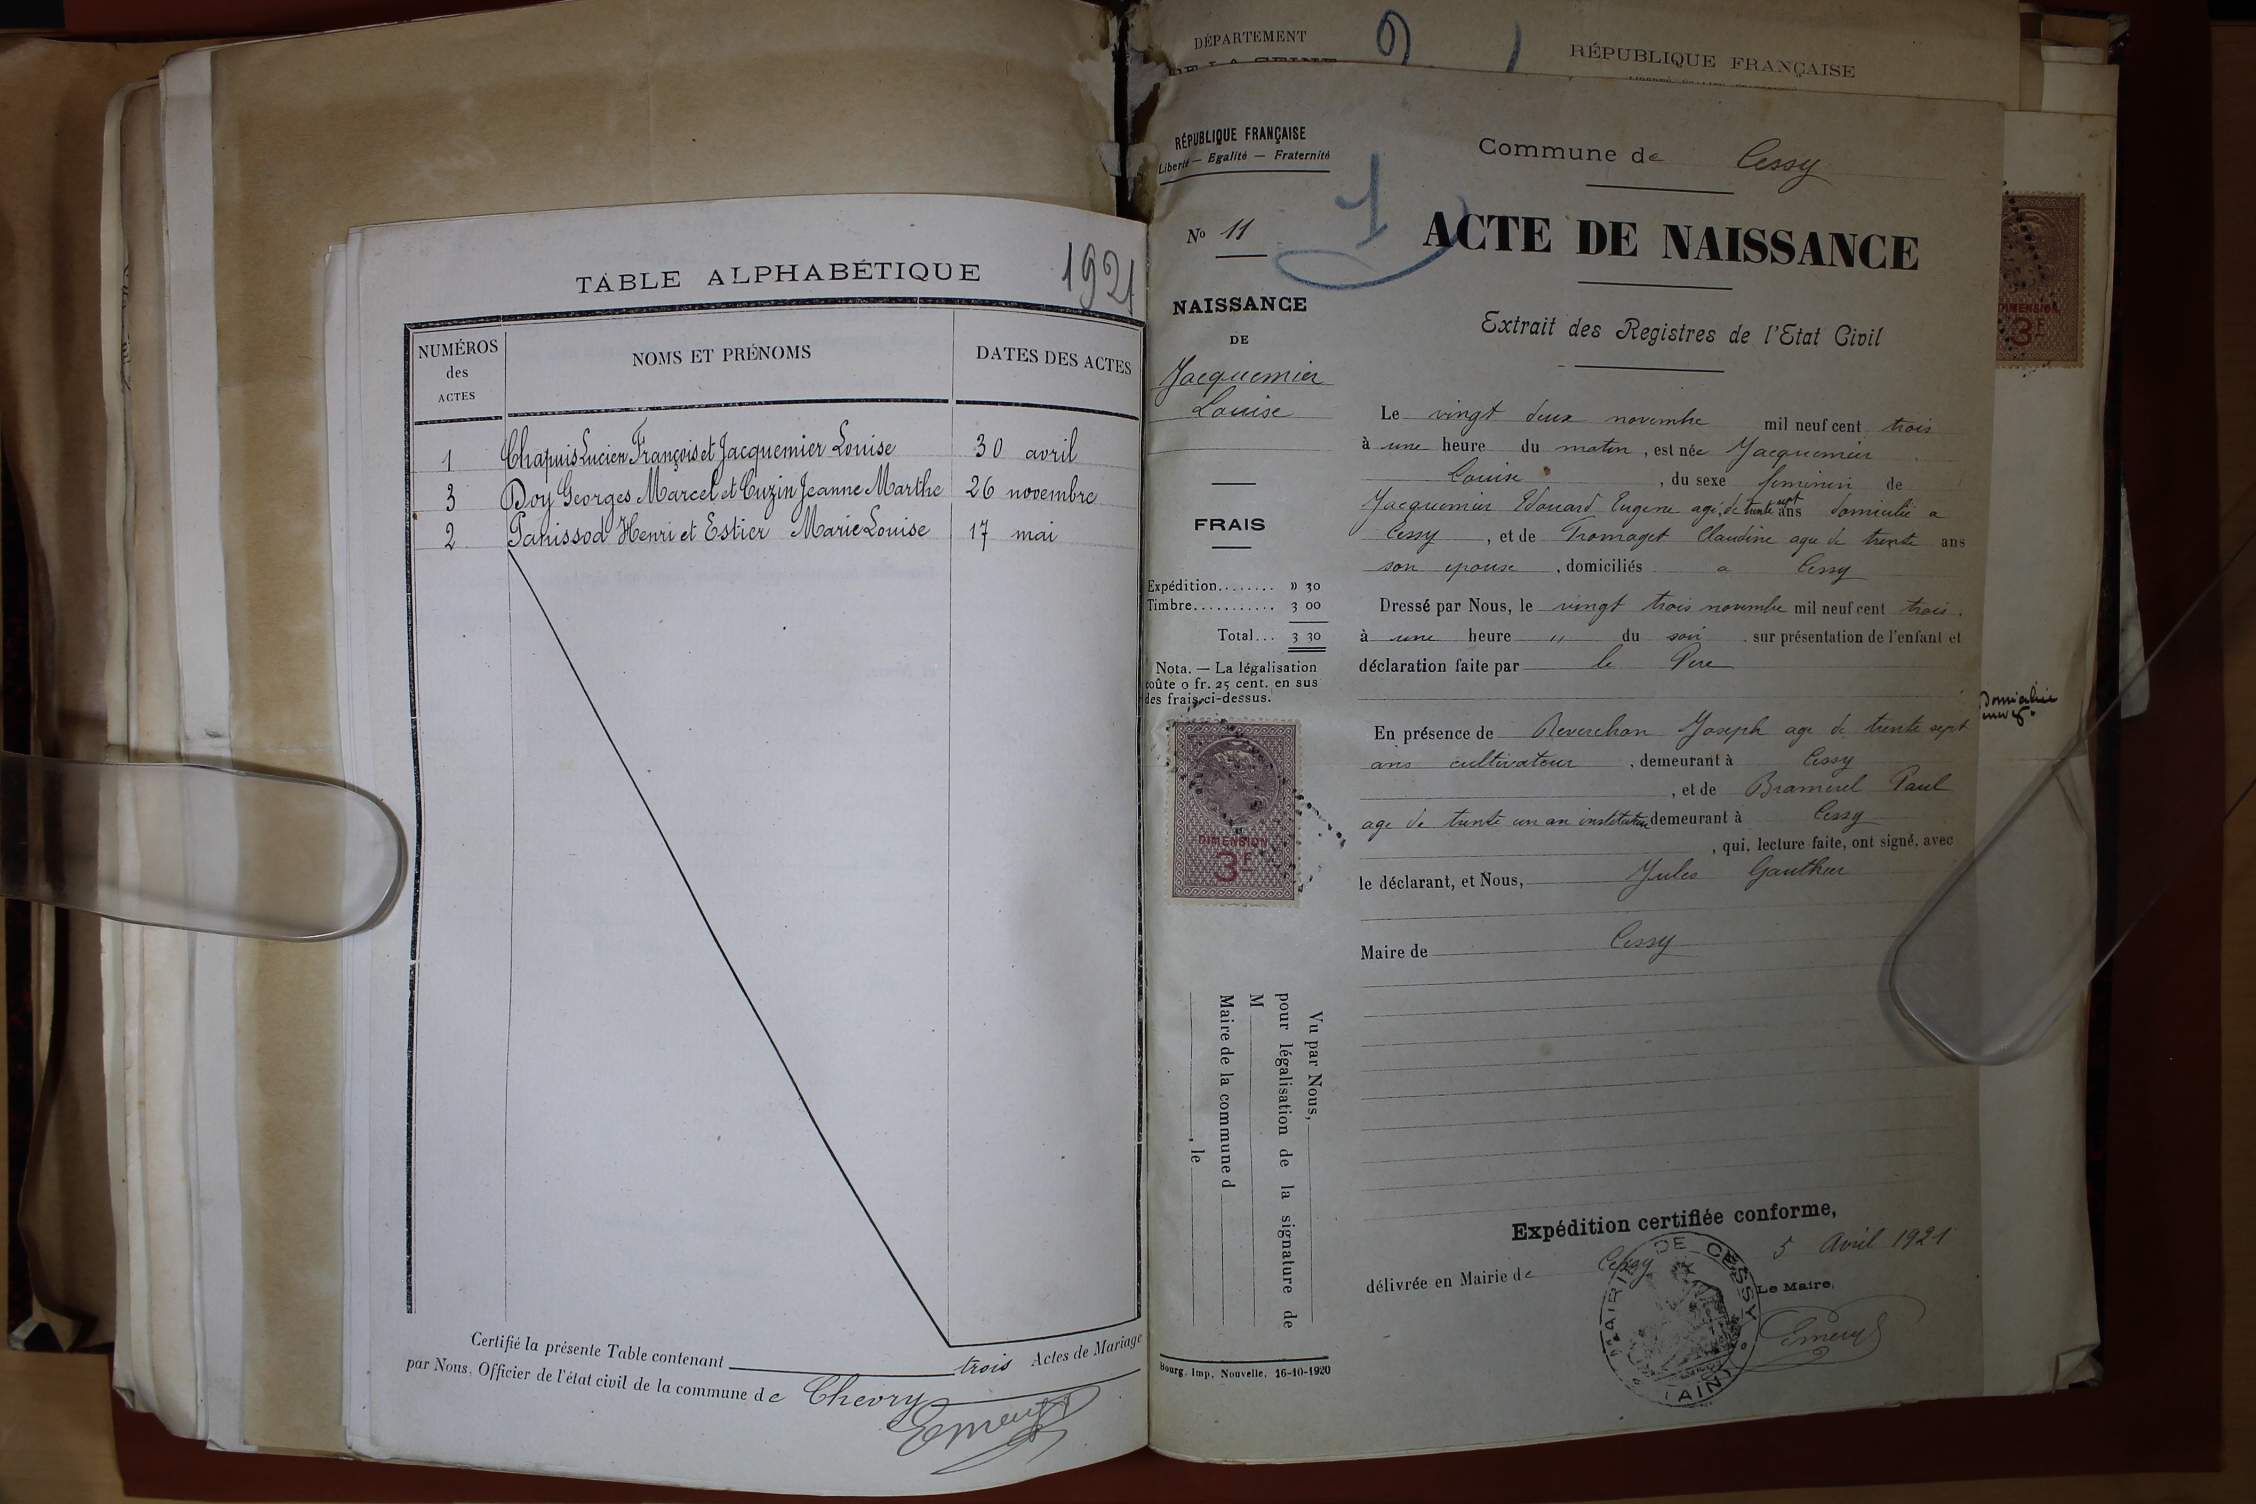 TABLE ALPHABÉTIQUE
1921
NUMÉROS
des
ACTES
NOMS ET PRÉNOMS
DATES DES ACTES
1 Chapuis Lucien François et Jacquemier Louise 30 avril
3 Doy Georges Marcel et Cuzin Jeanne Marthe 26 novembre
2 Panissod Henri et Estier Marie Louise 17 mai
Certifié la présente Table contenant trois Actes de Mariage
par Nous, Officier de l'état civil de la commune de Chevry
Emery
DÉPARTEMENT
DE LA SEINE
RÉPUBLIQUE FRANÇAISE
RÉPUBLIQUE FRANÇAISE
Liberté — Egalité — Fraternité
1
No 11
NAISSANCE
DE
Jacquemier
Louise
FRAIS
Expédition........ » 30
Timbre........... 3 00
Total... 3 30
Nota. — La légalisation
coûte 0 fr. 25 cent. en sus
des frais ci-dessus.
DIMENSION
3F
Vu par Nous,
pour légalisation de la signature de
M
Maire de la commune d
, le
Bourg, Imp. Nouvelle, 16-10-1920
Commune de Cessy
ACTE DE NAISSANCE
Extrait des Registres de l'Etat Civil
Le vingt deux novembre mil neuf cent trois
à une heure du matin, est née Jacquemier
Louise, du sexe feminin de
Jacquemier Edouard Eugene agé de trente sept ans domicilié a
Cessy, et de Fromaget Claudine agee de trente ans
son epouse, domiciliés a Cessy
Dressé par Nous, le vingt trois novembre mil neuf cent trois.
à une heure " du soir. sur présentation de l'enfant et
déclaration faite par le Pere
En présence de Reverchon Joseph age de trente sept
ans cultivateur, demeurant à Cessy
, et de Bramerel Paul
age de trente un an instituteur demeurant à Cessy
, qui, lecture faite, ont signé, avec
le déclarant, et Nous, Jules Gauthier
Maire de Cessy
Expédition certifiée conforme,
délivrée en Mairie de Cessy 5 Avril 1921
Le Maire,
Emery
MAIRIE DE CESSY
(AIN)
DIMENSION
3F